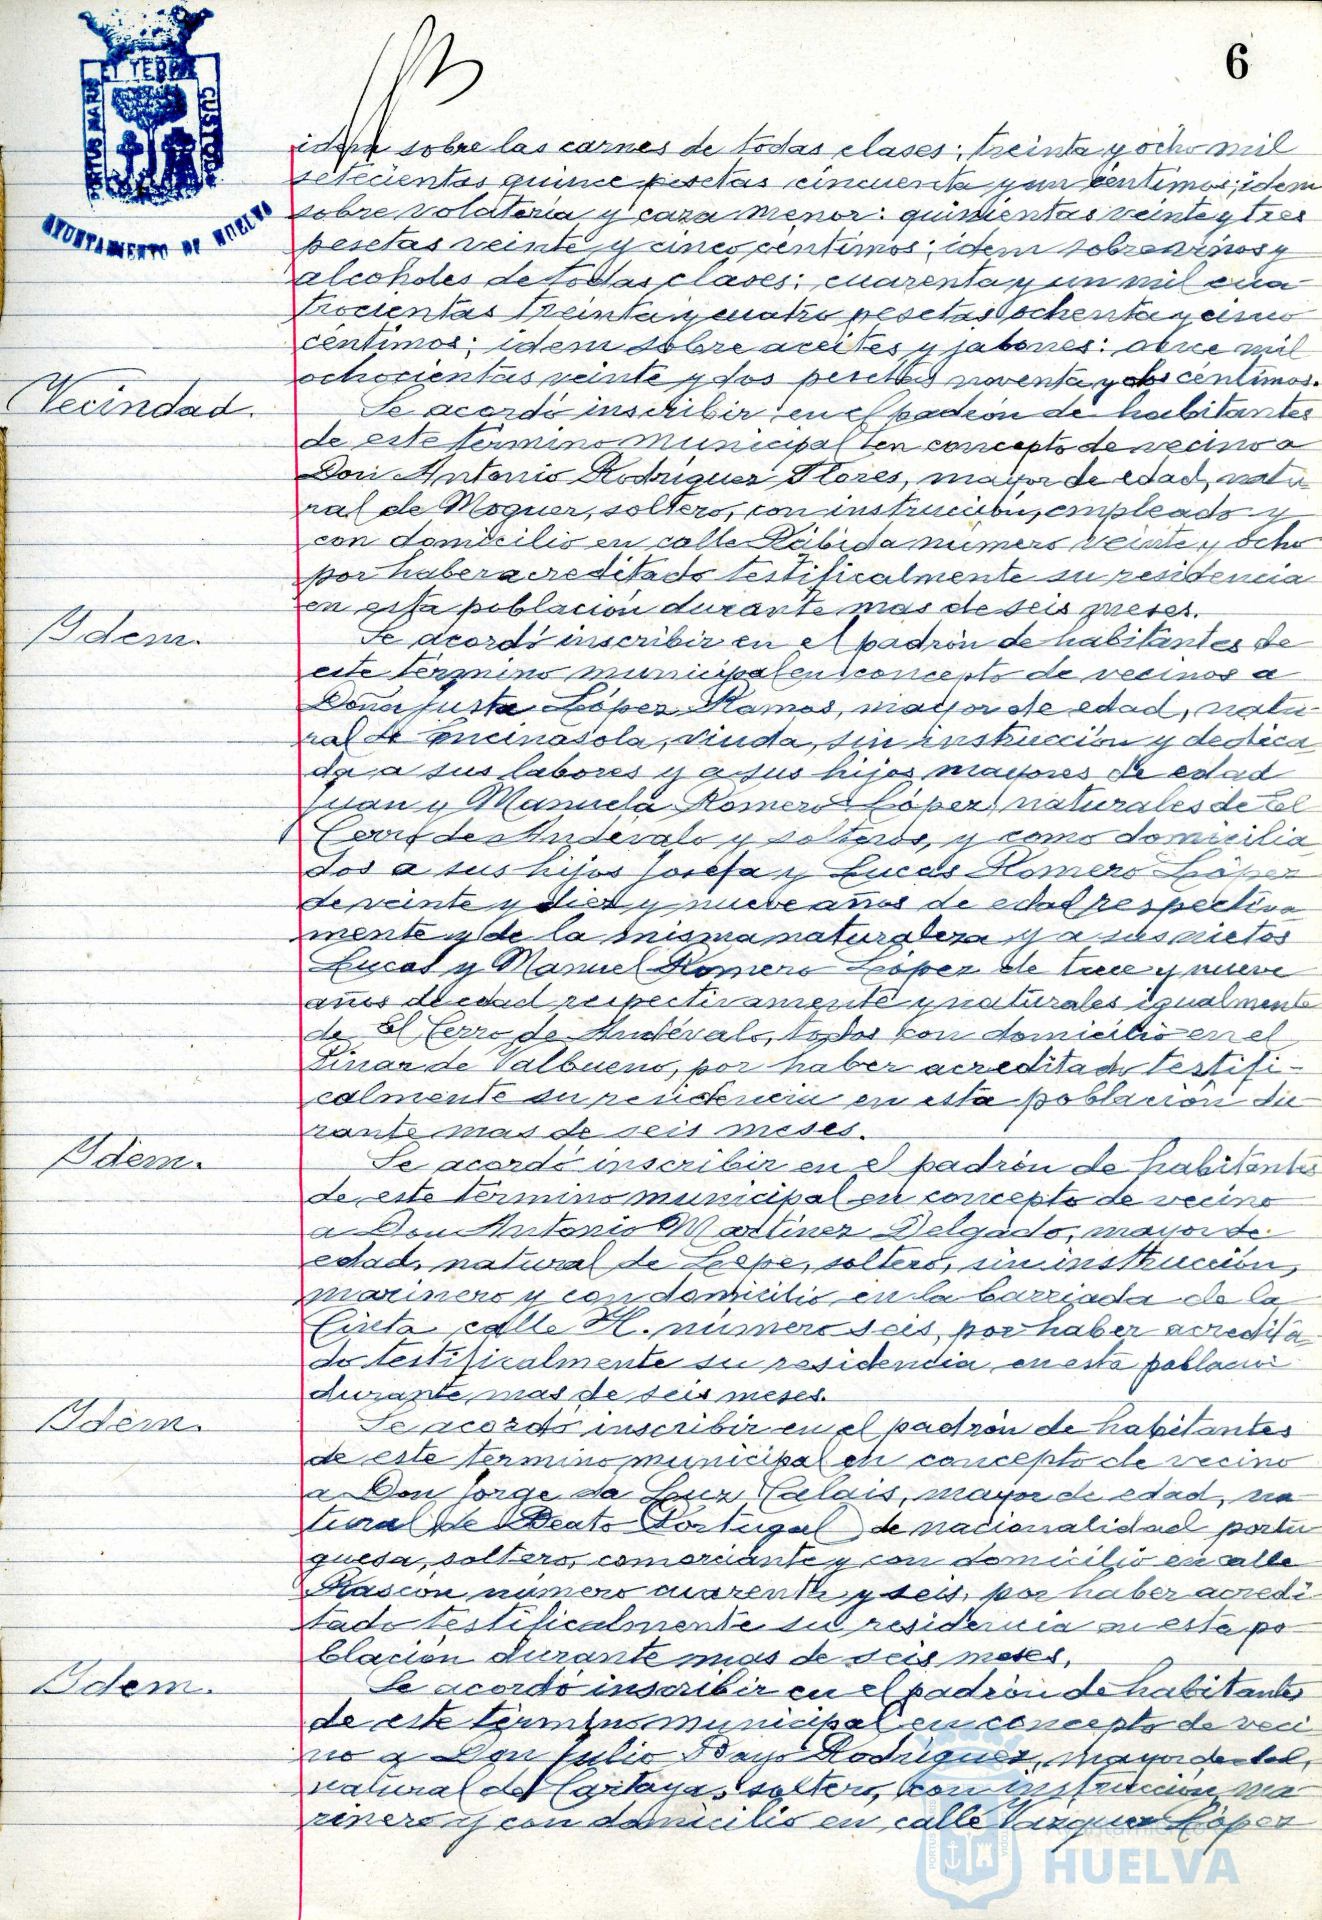 6
ET TERRE
PORTUS MARIS
CUSTODIA
AYUNTAMIENTO DE HUELVA
idem sobre las carnes de todas clases: treinta y ocho mil
setecientas quince pesetas cincuenta y un céntimos; idem
sobre volatería y caza menor: quinientas veinte y tres
pesetas veinte y cinco céntimos; idem sobre vinos y
alcoholes de todas clases: cuarenta y un mil cua-
trocientas treinta y cuatro pesetas ochenta y cinco
céntimos; idem sobre aceites y jabones: once mil
ochocientas veinte y dos pesetas noventa y dos céntimos.
Vecindad.
Se acordó inscribir en el padrón de habitantes
de este término municipal en concepto de vecino a
Don Antonio Rodríguez Flores, mayor de edad, natu-
ral de Moguer, soltero, con instrucción, empleado y
con domicilio en calle Rábida número veinte y ocho
por haber acreditado testificalmente su residencia
en esta población durante mas de seis meses.
Idem.
Se acordó inscribir en el padrón de habitantes de
este término municipal en concepto de vecinos a
Doña Justa López Ramos, mayor de edad, natu-
ral de Encinasola, viuda, sin instrucción y dedica-
da a sus labores y a sus hijos mayores de edad
Juan y Manuela Romero López, naturales de El
Cerro de Andévalo y solteros, y como domicilia-
dos a sus hijos Josefa y Lucas Romero López
de veinte y diez y nueve años de edad respectiva
mente y de la misma naturaleza y a sus nietos
Lucas y Manuel Romero López de trece y nueve
años de edad respectivamente y naturales igualmente
de El Cerro de Andévalo, todos con domicilio en el
Pinar de Valbueno, por haber acreditado testifi-
calmente su residencia en esta población du-
rante mas de seis meses.
Idem.
Se acordó inscribir en el padrón de habitantes
de este término municipal en concepto de vecino
a Don Antonio Martínez Delgado, mayor de
edad, natural de Lepe, soltero, sin instrucción,
marinero y con domicilio en la barriada de la
Cinta calle H. número seis, por haber acredita-
do testificalmente su residencia en esta población
durante mas de seis meses.
Idem.
Se acordó inscribir en el padrón de habitantes
de este término municipal en concepto de vecino
a Don Jorge da Luz Calais, mayor de edad, na
tural de Beato (Portugal) de nacionalidad portu-
guesa, soltero, comerciante y con domicilio en calle
Rascón número cuarenta y seis, por haber acredi-
tado testificalmente su residencia en esta po-
blación durante mas de seis meses.
Idem.
Se acordó inscribir en el padrón de habitantes
de este término municipal en concepto de veci
no a Don Julio Bayo Rodríguez, mayor de edad,
natural de Cartaya, soltero, con instrucción, ma
rinero y con domicilio en calle Vázquez López
Ayuntamiento
HUELVA